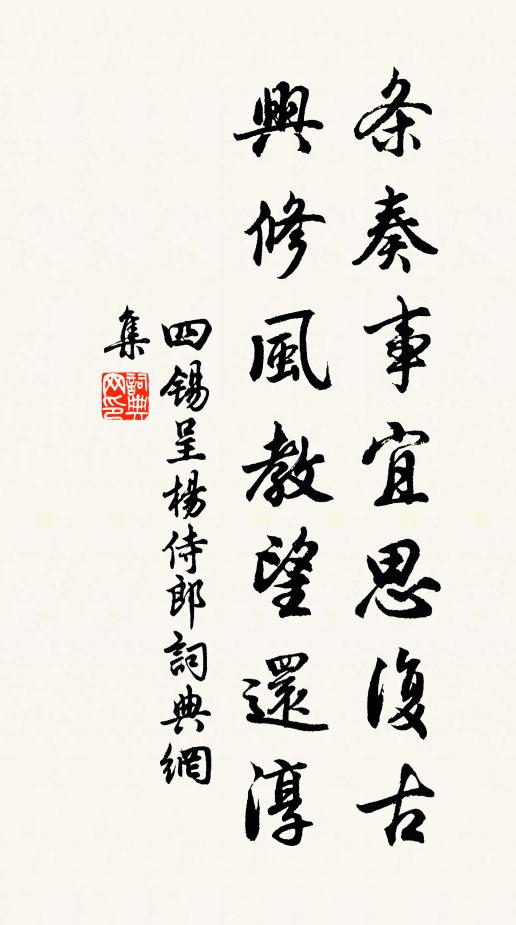 条奏事宜思復古
興修風教望還淳
四錫呈楊侍郎詞典網
集
詞典
网印